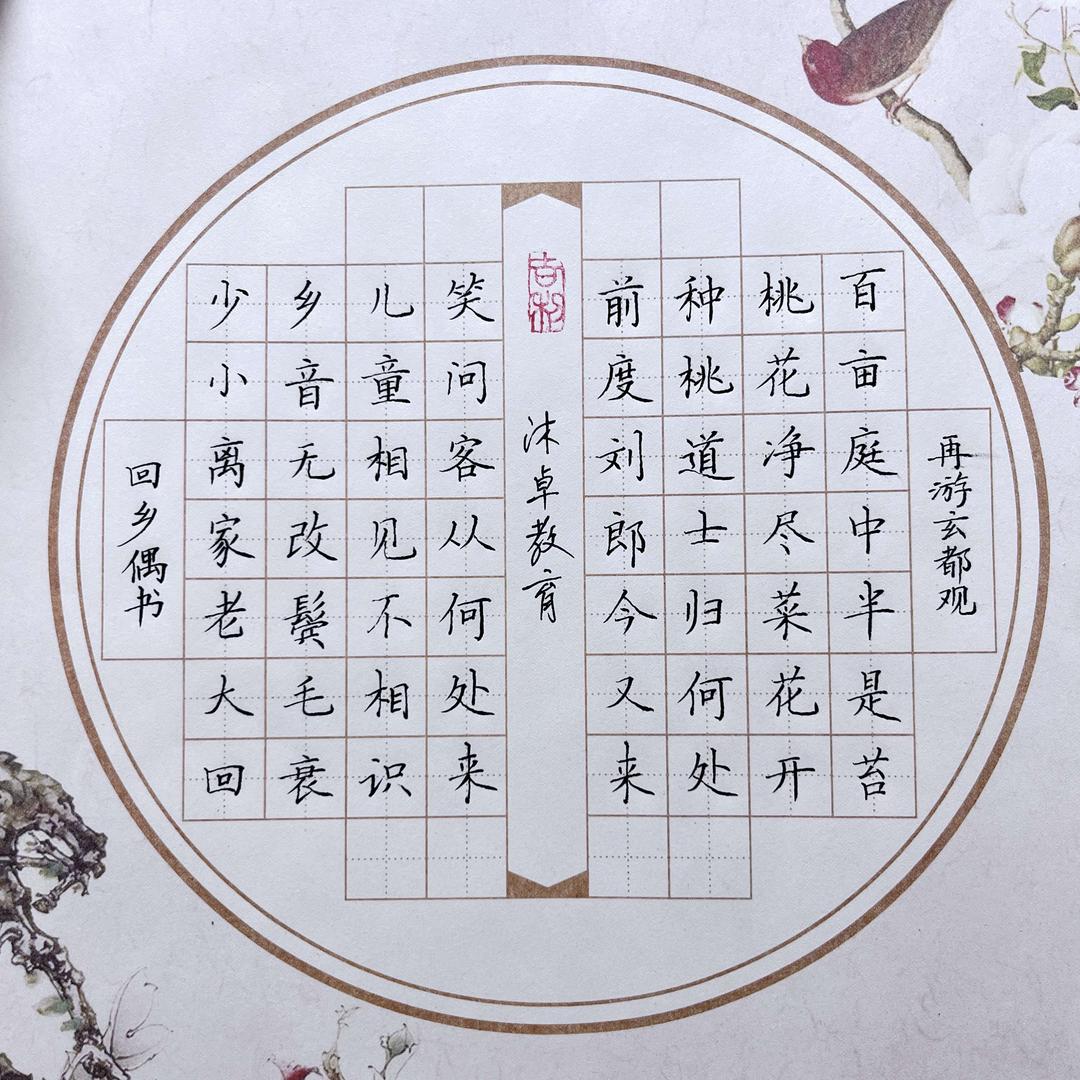 再游玄都观
百亩庭中半是苔
桃花净尽菜花开
种桃道士归何处
前度刘郎今又来
沐卓教育
回乡偶书
少小离家老大回
乡音无改鬓毛衰
儿童相见不相识
笑问客从何处来